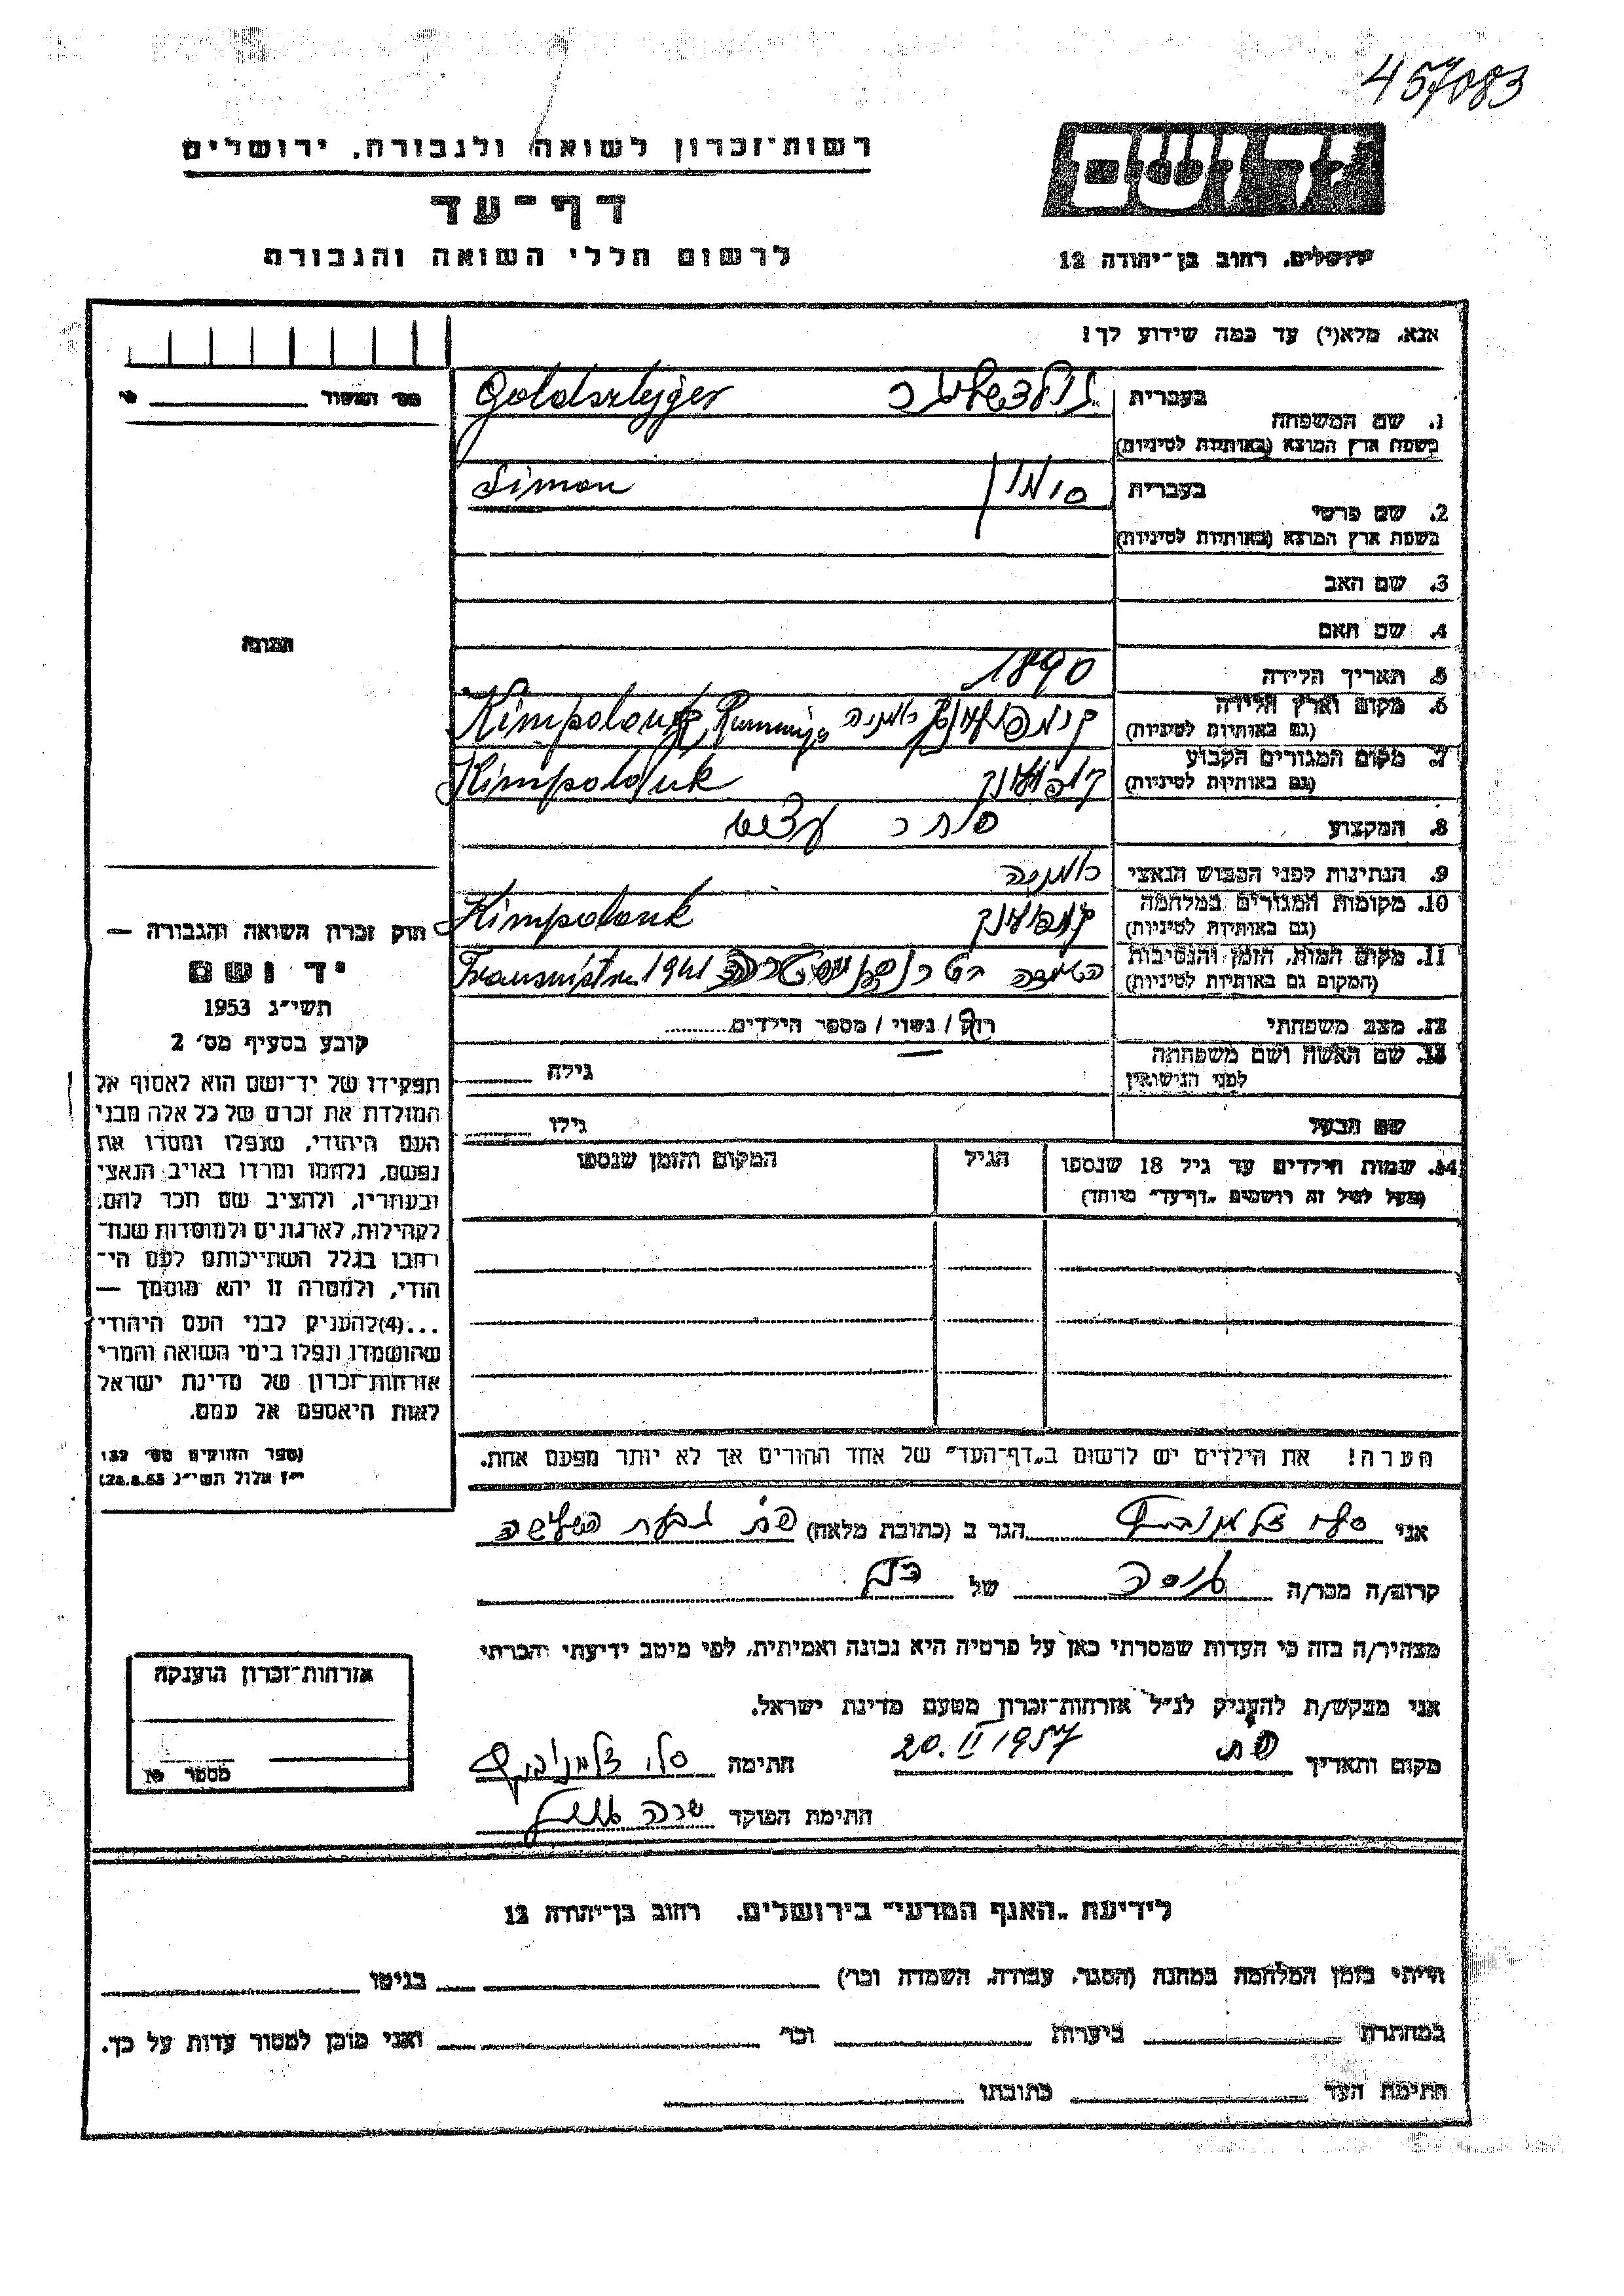 457083
יד ושם
רשות־זכרון לשואה ולגבורה, ירושלים
דף־עד
לרשום חללי השואה והגבורה
ירושלים, רחוב בן־יהודה 12
אנא, מלא(י) עד כמה שידוע לך!
מס' המשור
1. שם המשפחה
בעברית
Goldszlejger
בשפת ארץ המוצא (באותיות לטיניות)
2. שם פרטי
בעברית
סימון
Simon
בשפת ארץ המוצא (באותיות לטיניות)
3. שם האב
4. שם האם
5. תאריך הלידה
1890
6. מקום וארץ הלידה
(גם באותיות לטיניות)
רומניה
7. מקום המגורים הקבוע
(גם באותיות לטיניות)
8. המקצוע
סוחר עצים
9. הנתינות לפני הכבוש הנאצי
רומניה
10. מקומות המגורים במלחמה
(גם באותיות לטיניות)
Kimpolonk
11. מקום המות, הזמן והנסיבות
(המקום גם באותיות לטיניות)
1941
12. מצב משפחתי
רווק / נשוי / מספר הילדים
13. שם האשה ושם משפחתה
לפני הנישואין
גילה
שם הבעל
גילו
14. שמות הילדים עד גיל 18 שנספו
(מעל לגיל זה רושמים „דף־עד״ מיוחד)
הגיל
המקום והזמן שנספו
הערה! את הילדים יש לרשום ב„דף־העד״ של אחד ההורים אך לא יותר מפעם אחת.
התמונה
חוק זכרון השואה והגבורה —
יד ושם
תשי״ג 1953
קובע בסעיף מס׳ 2
תפקידו של יד־ושם הוא לאסוף אל
המולדת את זכרם של כל אלה מבני
העם היהודי, שנפלו ומסרו את
נפשם, נלחמו ומרדו באויב הנאצי
ובעוזריו, ולהציב שם וזכר להם,
לקהילות, לארגונים ולמוסדות שנח־
רחבו בגלל השתייכותם לעם הי־
הודי, ולמטרה זו יהא מוסמך —
...(4)להעניק לבני העם היהודי
שהושמדו ונפלו בימי השואה והמרי
אזרחות־זכרון של מדינת ישראל
לאות היאספם אל עמם.
(ספר החוקים מס׳ 132
י״ז אלול תשי״ג 28.8.53)
אני
הגר ב (כתובת מלאה)
קרוב/ה מכר/ה
של
מצהיר/ה בזה כי העדות שמסרתי כאן על פרטיה היא נכונה ואמיתית, לפי מיטב ידיעתי והכרתי
אני מבקש/ת להעניק לנ״ל אזרחות־זכרון מטעם מדינת ישראל.
מקום ותאריך
20.II 1957
חתימה
חתימת הפוקד
אזרחות־זכרון הוענקה
מספר
לידיעת „האגף המדעי״ בירושלים, רחוב בן־יהודה 12
הייתי בזמן המלחמה במחנה (הסגר, עבודה, השמדה וכו׳)
בגיטו
במחתרת
ביערות
וכו׳
ואני מוכן למסור עדות על כך.
חתימת העד
כתובתו